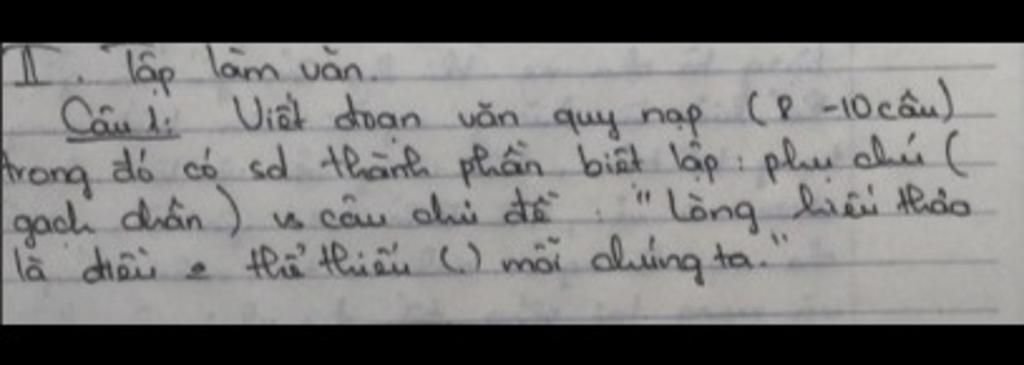 II. Tập làm văn.
Câu 1: Viết đoạn văn quy nạp (8 -10 câu)
trong đó có sd thành phần biệt lập: phụ chú (
gạch chân) vs câu chủ đề: "Lòng hiếu thảo
là điều e thể thiếu (.) mỗi chúng ta."